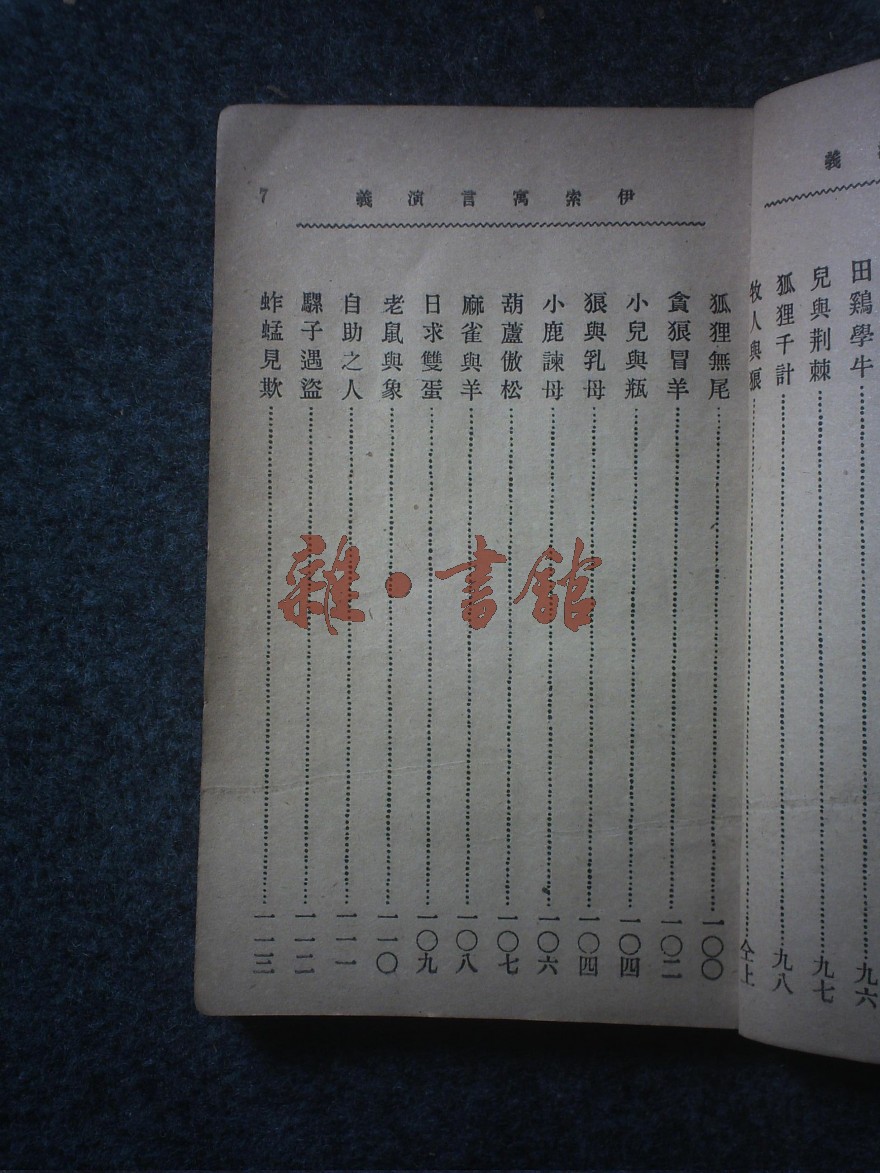 義
田鷄學牛……九六
兒與荆棘……九七
狐狸千計……九八
牧人與狼……仝上
伊索寓言演義 7
狐狸無尾……一〇〇
貪狼冒羊……一〇二
小兒與瓶……一〇四
狼與乳母……一〇四
小鹿諫母……一〇六
葫蘆傲松……一〇七
麻雀與羊……一〇八
日求雙蛋……一〇九
老鼠與象……一一〇
自助之人……一一一
騾子遇盜……一一二
蚱蜢見欺……一一三
雜·書館